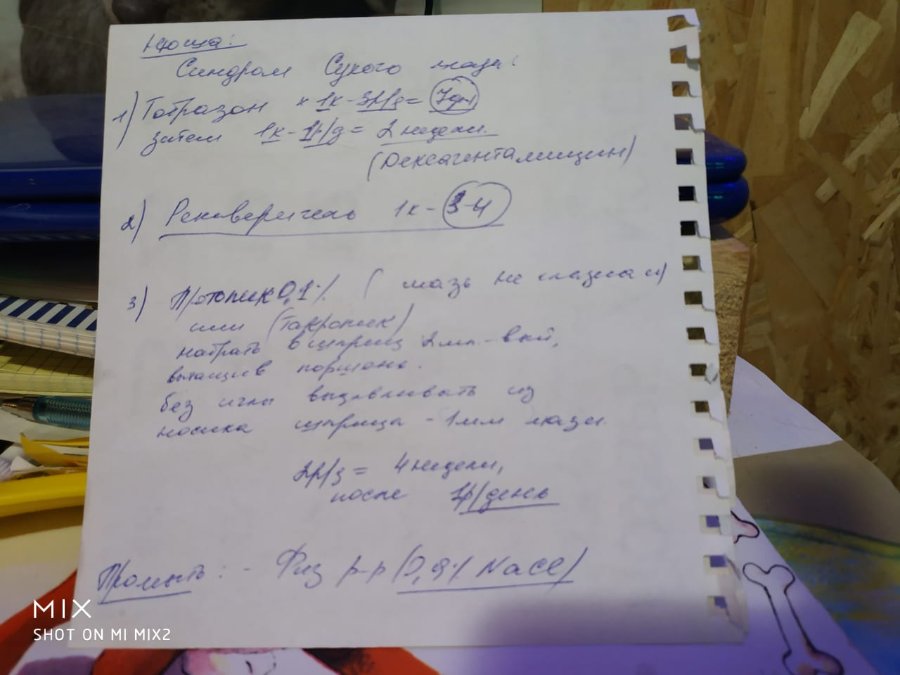 Нюша:
Синдром Сухого глаза:
1) Тобразон 1к-3р/д= 7дн
затем 1к-1р/д= 2 недели.
(Дексагентамицин)
2) Рековерегель 1к-3-4
3) Протопик 0,1% (мазь не глазная)
или (Такропик)
набрать в шприц 2мл-вый,
вытащив поршень.
без иглы выдавливать из
носика шприца - 1мм мази.
2р/д = 4 недели,
после 1р/день
Промыть: - Физ р-р (0,9% NaCl)
MIX
SHOT ON MI MIX2